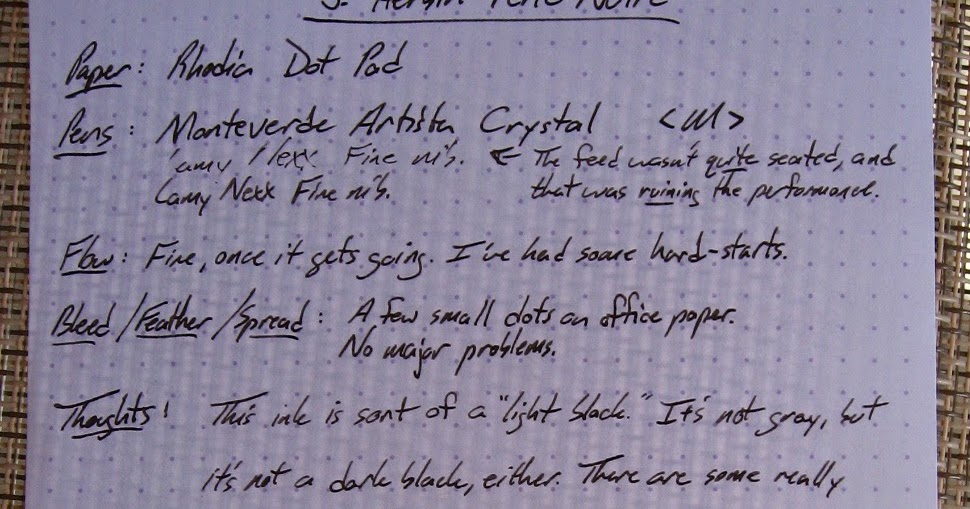 J. Herbin Perle Noire
Paper: Rhodia Dot Pad
Pens: Monteverde Artista Crystal <M>
Lamy Nexx Fine nib. ← The feed wasn't quite seated, and
Lamy Nexx Fine nib. that was ruining the performance.
Flow: Fine, once it gets going. I've had some hard-starts.
Bleed/Feather/Spread: A few small dots on office paper.
No major problems.
Thoughts: This ink is sort of a "light black." It's not gray, but
it's not a dark black, either. There are some really